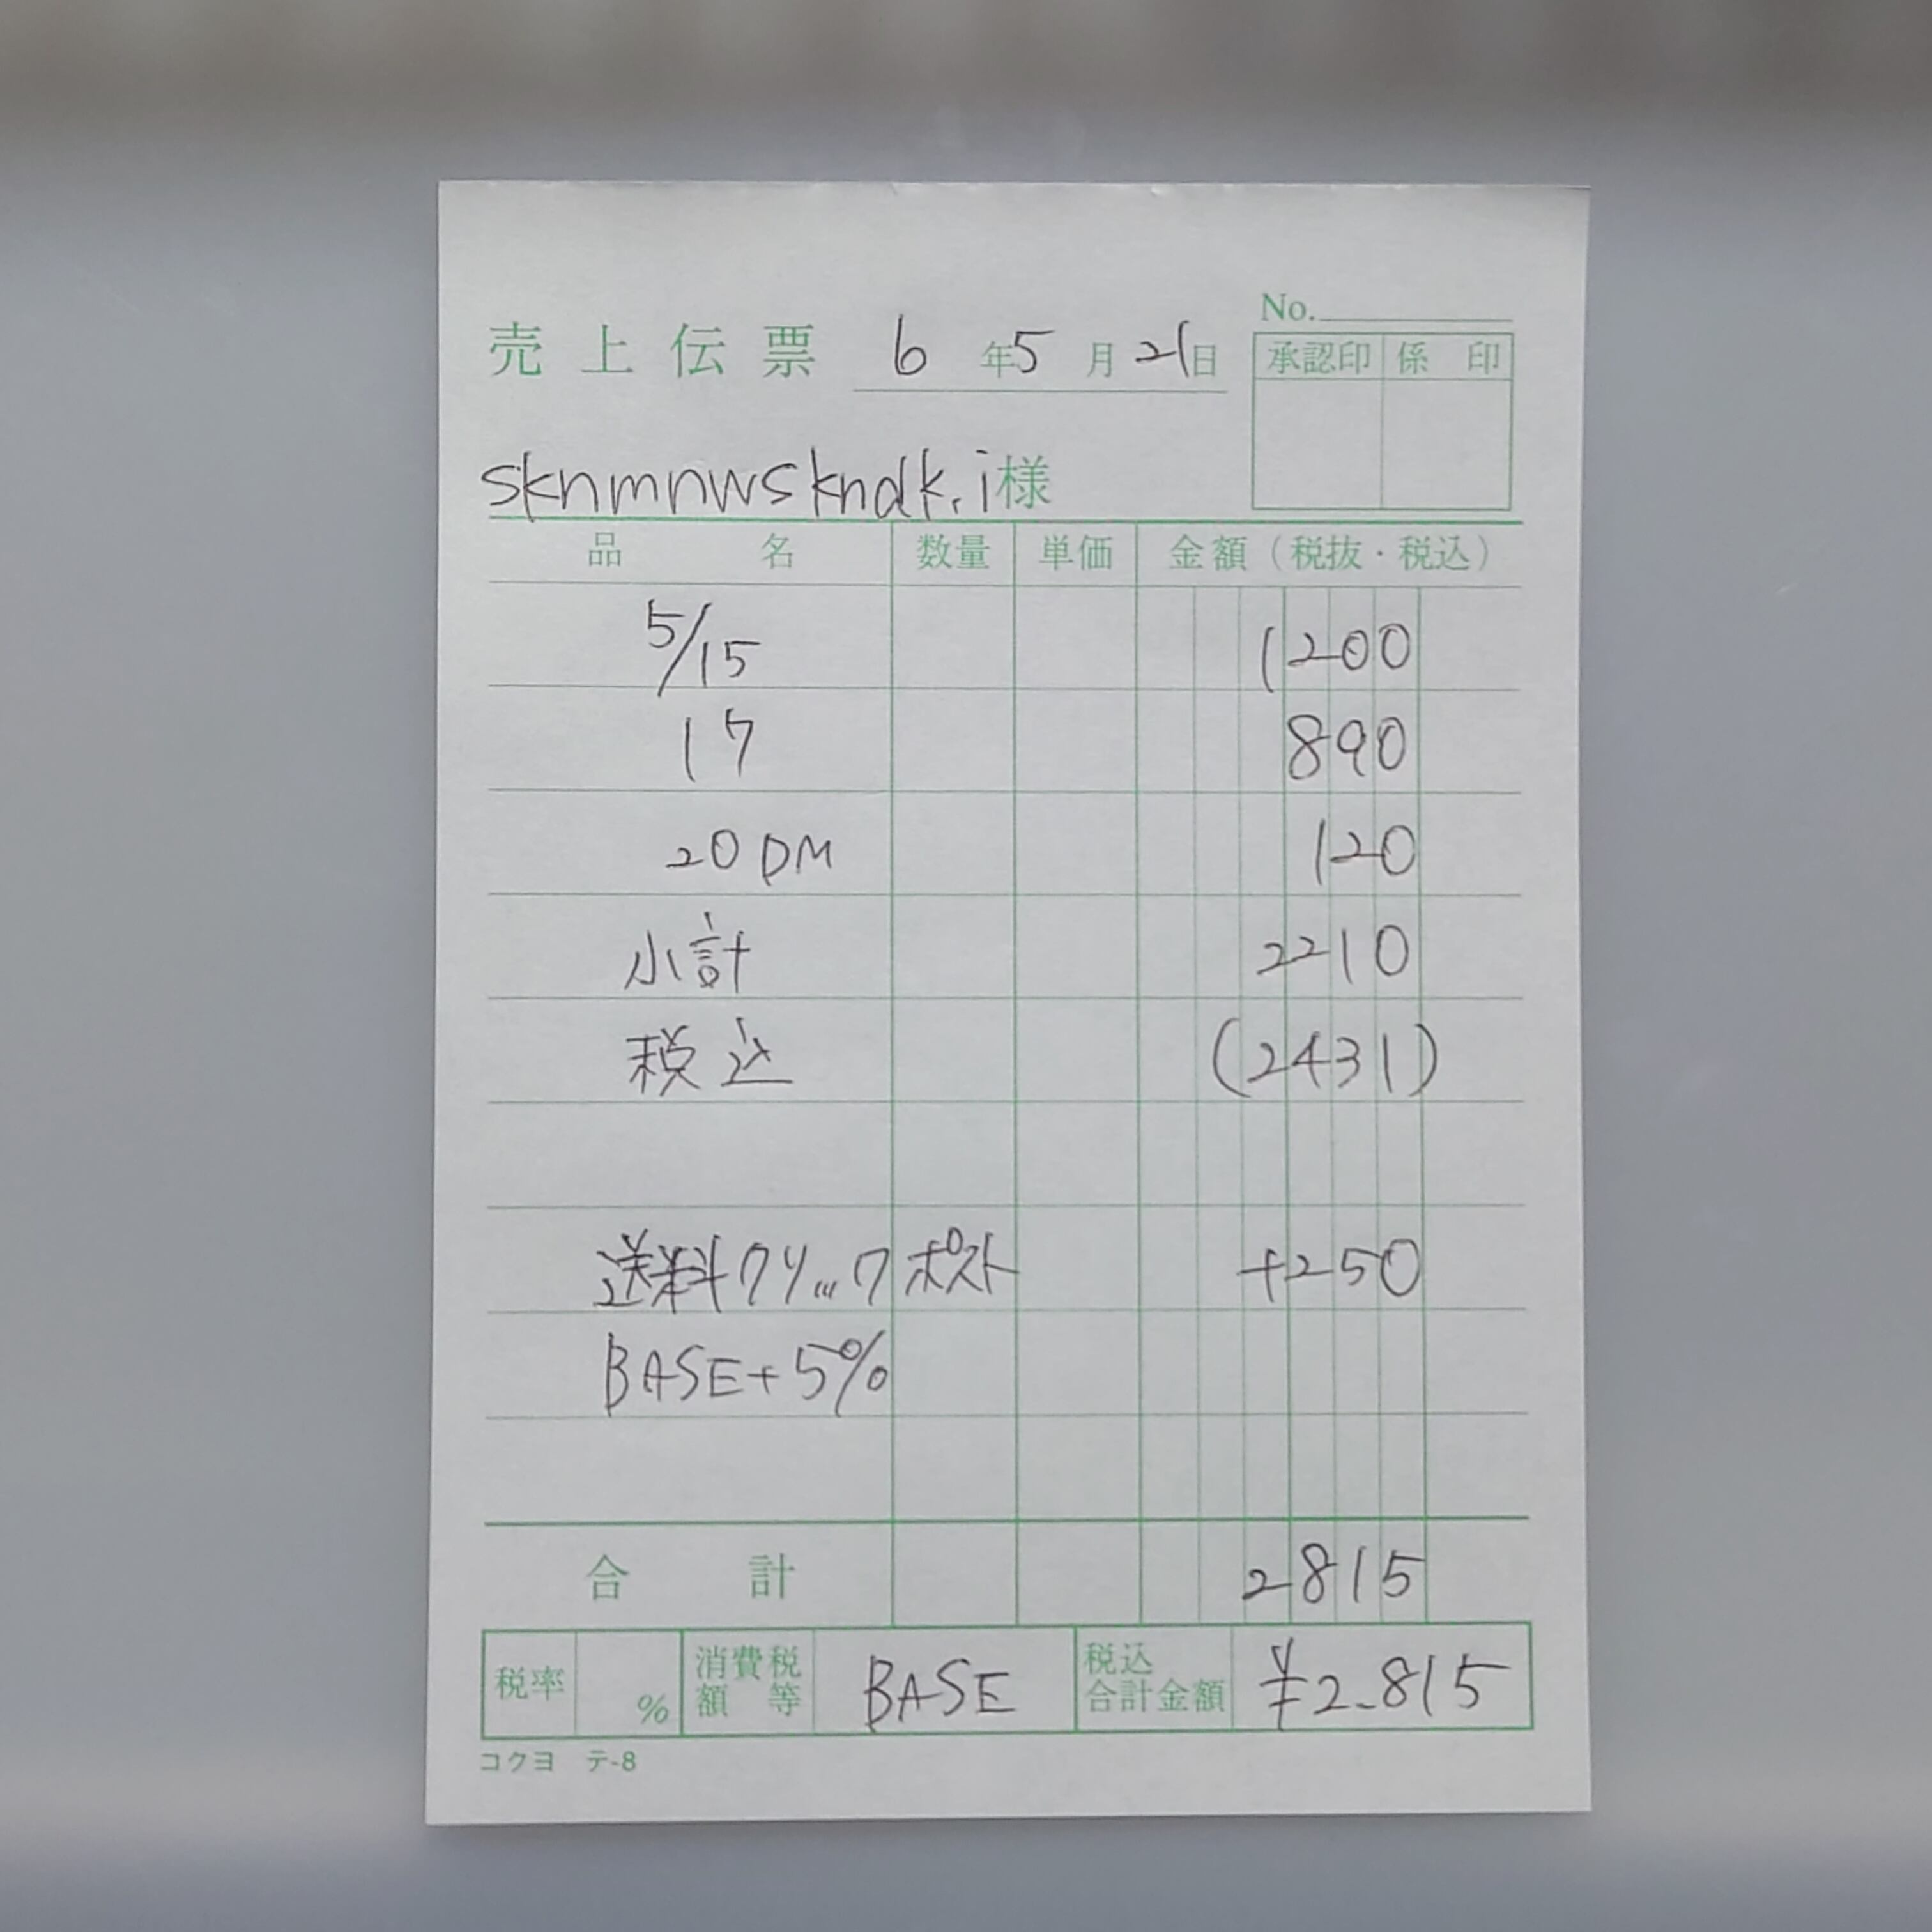 No.
売上伝票 6年5月21日
承認印 係印
sknmnwskndk.i様
品名 数量 単価 金額（税抜・税込）
5/15 1200
17 890
20 DM 120
小計 2210
税込 (2431)
送料クリックポスト +250
BASE+5%
合計 2815
税率 % 消費税額等 BASE 税込合計金額 ¥2.815
コクヨ テ-8